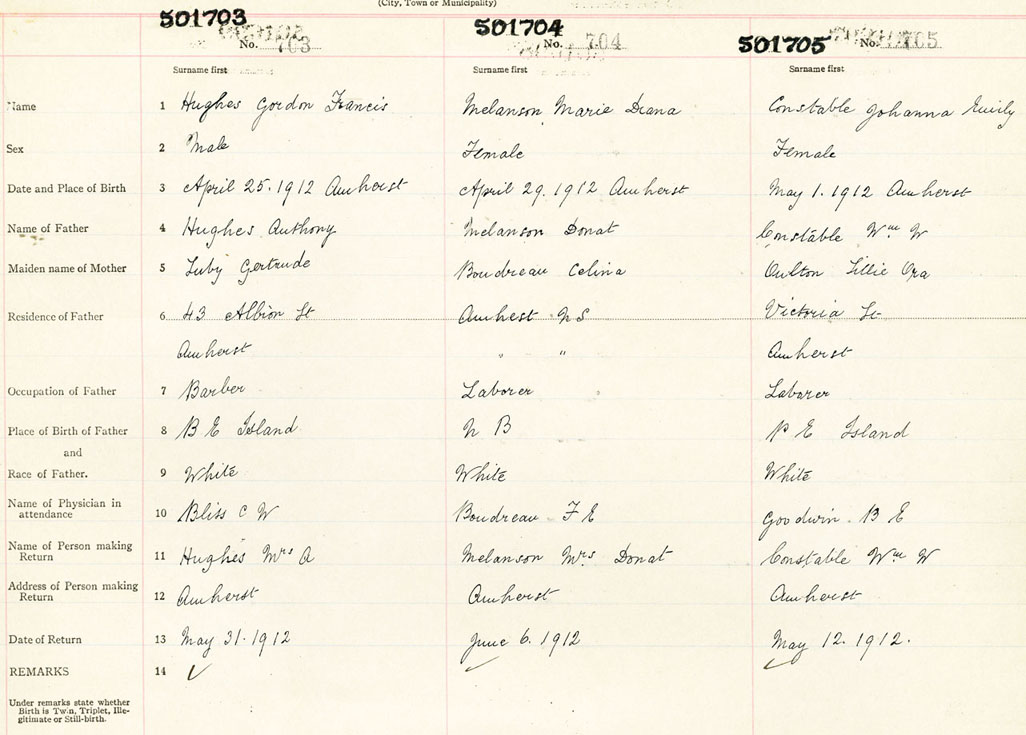 (City, Town or Municipality)
501703 501704 501705
No. 703 No. 704 No. 705
Surname first Surname first Surname first
Name 1 Hughes Gordon Francis Melanson Marie Diana Constable Johanna Emily
Sex 2 Male Female Female
Date and Place of Birth 3 April 25. 1912 Amherst April 29. 1912 Amherst May 1. 1912 Amherst
Name of Father 4 Hughes Anthony Melanson Donat Constable Wm W
Maiden name of Mother 5 Luby Gertrude Boudreau Celina Oulton Lillie Ora
Residence of Father 6 43 Albion St Amhest N S Victoria St
Amherst " " Amherst
Occupation of Father 7 Barber Laborer Laborer
Place of Birth of Father 8 B E Island N B P E Island
and
Race of Father. 9 White White White
Name of Physician in
attendance 10 Bliss C W Boudreau F E Goodwin B E
Name of Person making
Return 11 Hughes Mrs A Melanson Mrs Donat Constable Wm W
Address of Person making
Return 12 Amherst Amherst Amherst
Date of Return 13 May 31. 1912 June 6. 1912 May 12. 1912.
REMARKS 14 ✓ ✓ ✓
Under remarks state whether
Birth is Twin, Triplet, Ille-
gitimate or Still-birth.